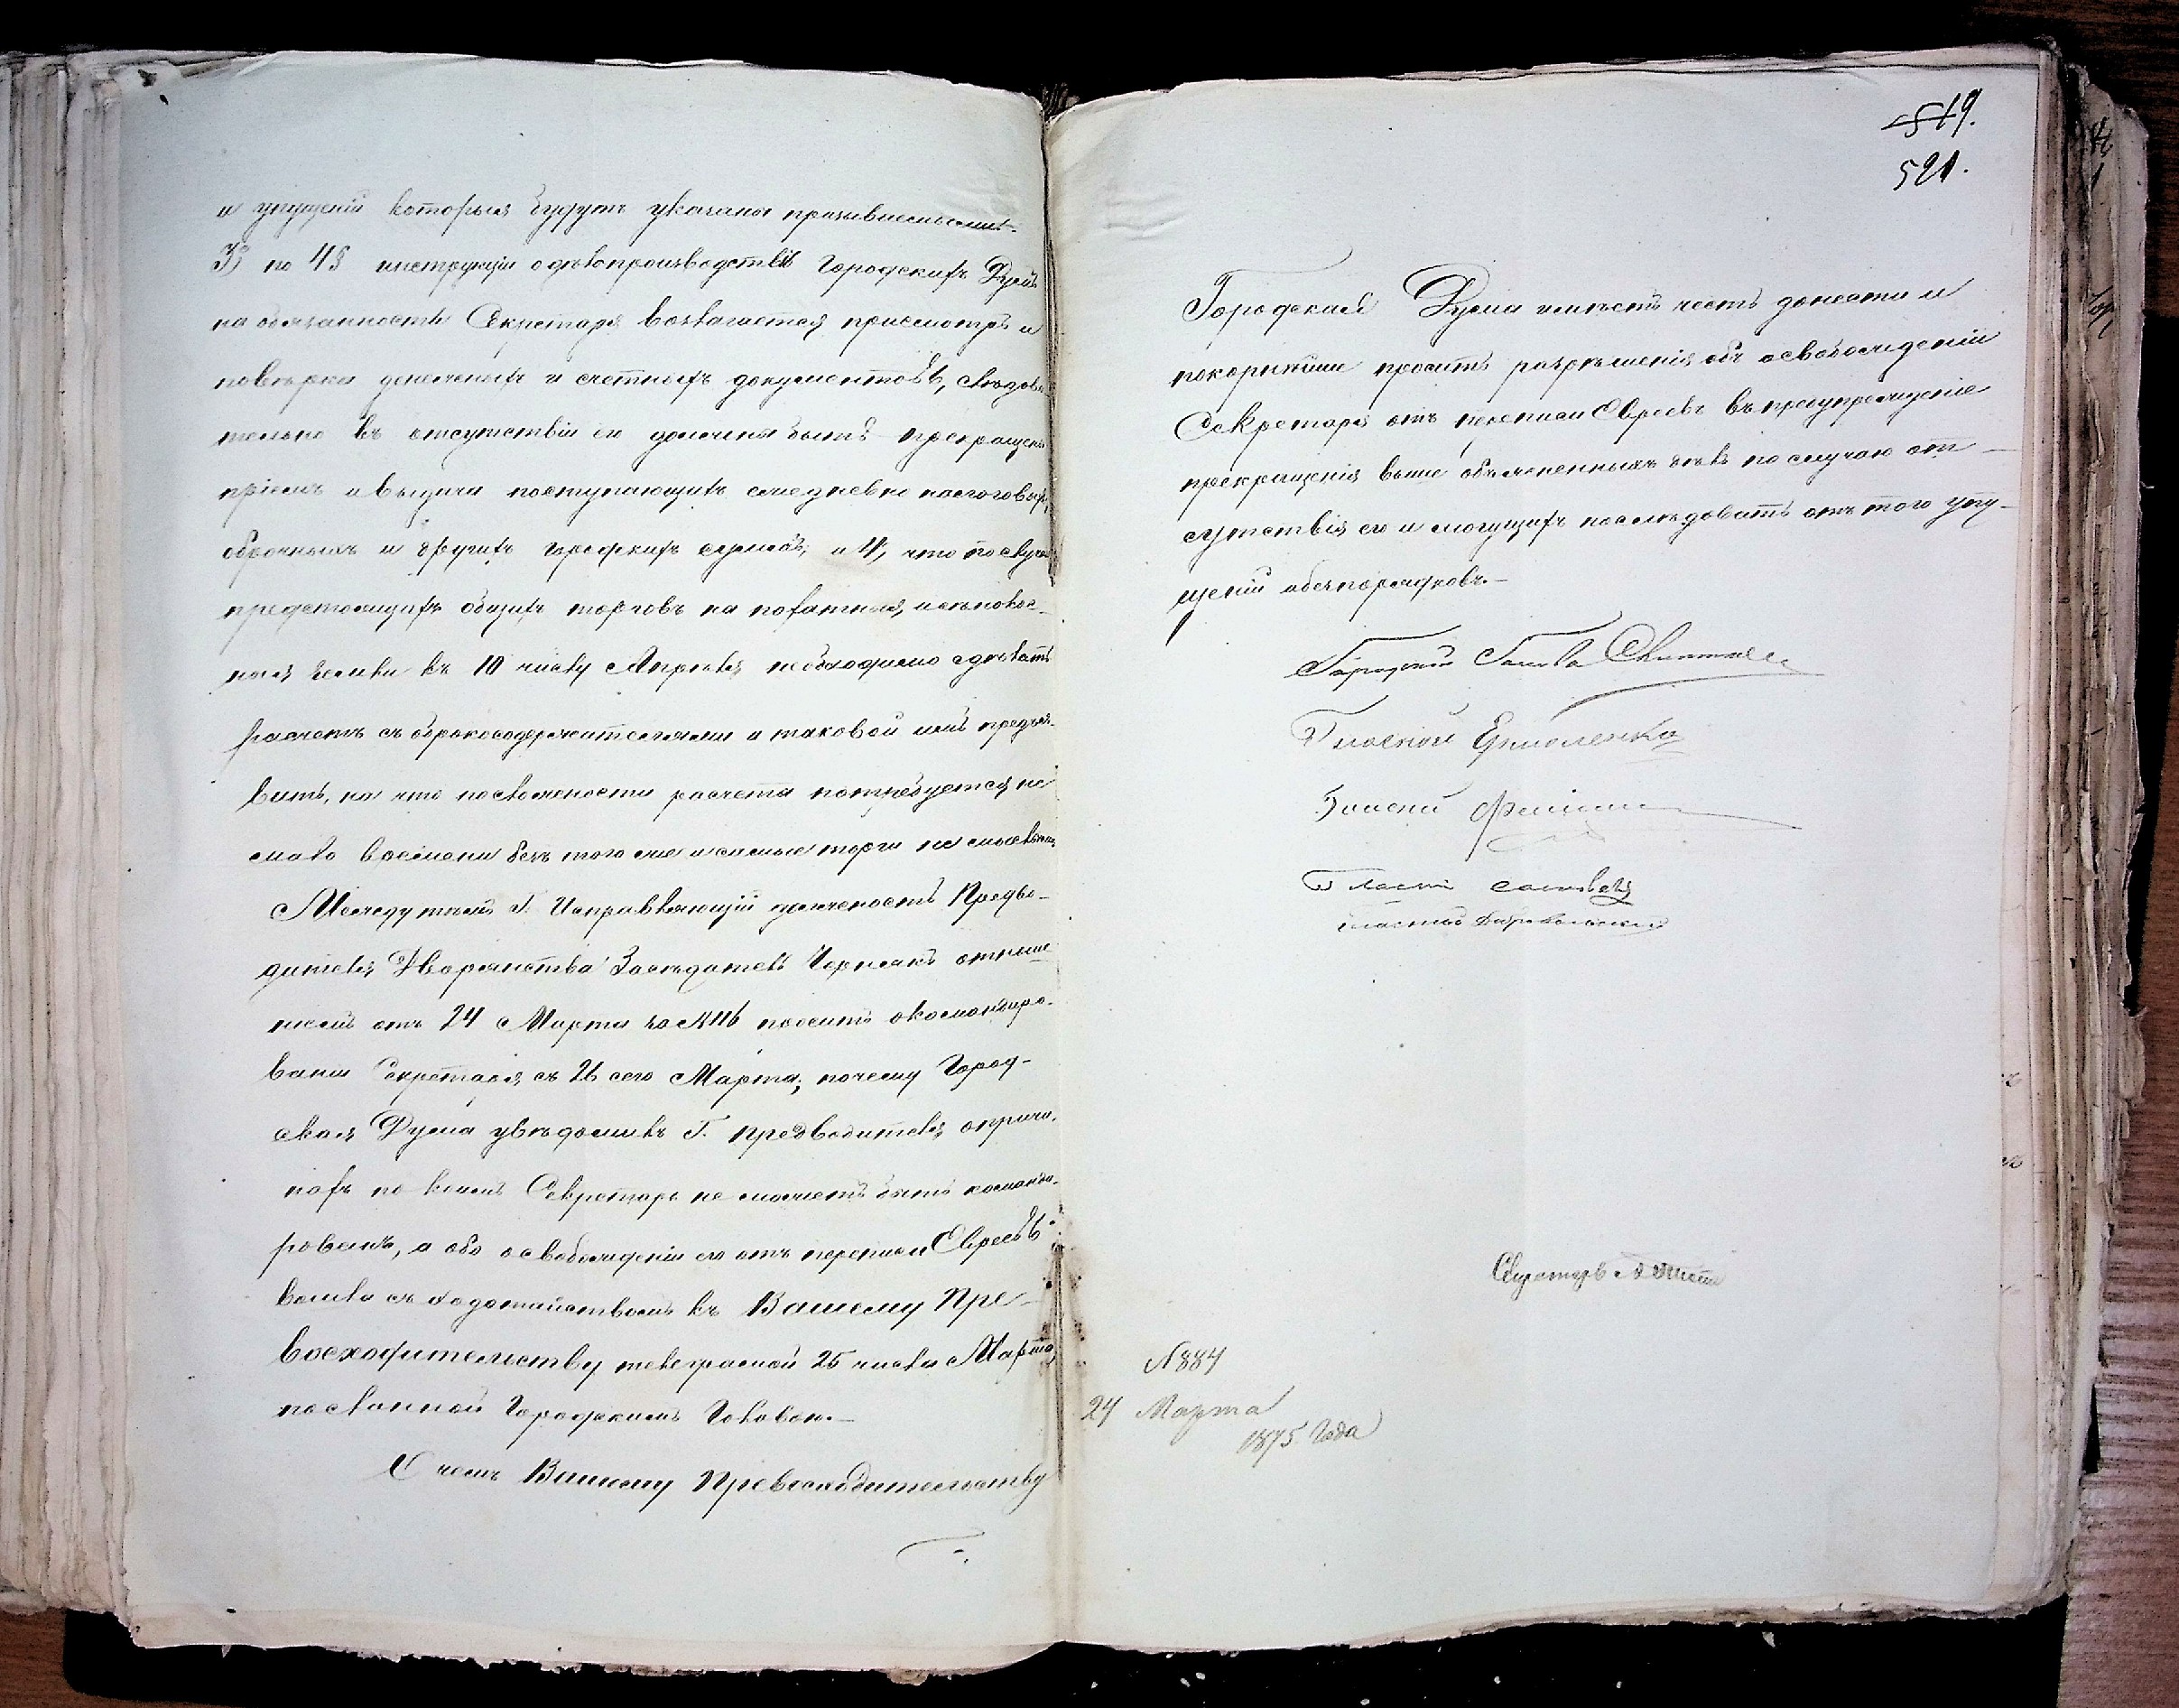 и упущенiя которыя будутъ указаны
3) по 4§ инструкцiи о дѣлопроизводствѣ Городскихъ Думъ
на обязанность Секретаря возлагается присмотръ и
повѣрка денежныхъ и счетныхъ документовъ, слѣдова
тельно въ отсутствiи его долженъ быть прекращенъ
прiемъ и выдача поступающихъ ежедневно
оброчныхъ и другихъ городскихъ суммъ; и 4, что по случаю
предстоящихъ общихъ торговъ на пахатныя, и сѣнокос-
ныя земли къ 10 числу Апрѣля необходимо сдѣлать
расчетъ съ оброкосодержателями и таковой имъ предъя-
вить, на что по сложности расчета потребуется не
мало времени безъ того же и самые торги не
Между тѣмъ Г. Исправляющiй должность Предво-
дителя Дворянства Засѣдатель Чернякъ отноше
нiемъ отъ 24 Марта за № 116 проситъ о командиро-
ванiи Секретаря съ 26 сего Марта; почему Город-
ская Дума увѣдомивъ Г. Предводителя о причи-
нахъ по коимъ Секретарь не можетъ быть команди-
рованъ, а объ освобожденiи его отъ переписи Евреевъ
вошла съ ходатайствомъ къ Вашему Пре-
восходительству телеграммой 25 числа Марта
посланной Городскимъ Головою.-
О чемъ Вашему Превосходительству
519.
521.
Городская Дума имѣетъ честь донести и
покорнѣйше проситъ разрѣшенiя объ освобожденiи
Секретаря отъ переписи Евреевъ въ предупрежденiе
прекращенiя выше объясненныхъ дѣлъ по случаю от-
сутствiя его и могущихъ послѣдовать отъ того упу-
щенiй и безпорядковъ.-
Городской Голова
Гласный Ермоленко
Гласный
Гласный
Гласный
Секретарь
№ 884
24 Марта
1875 Года